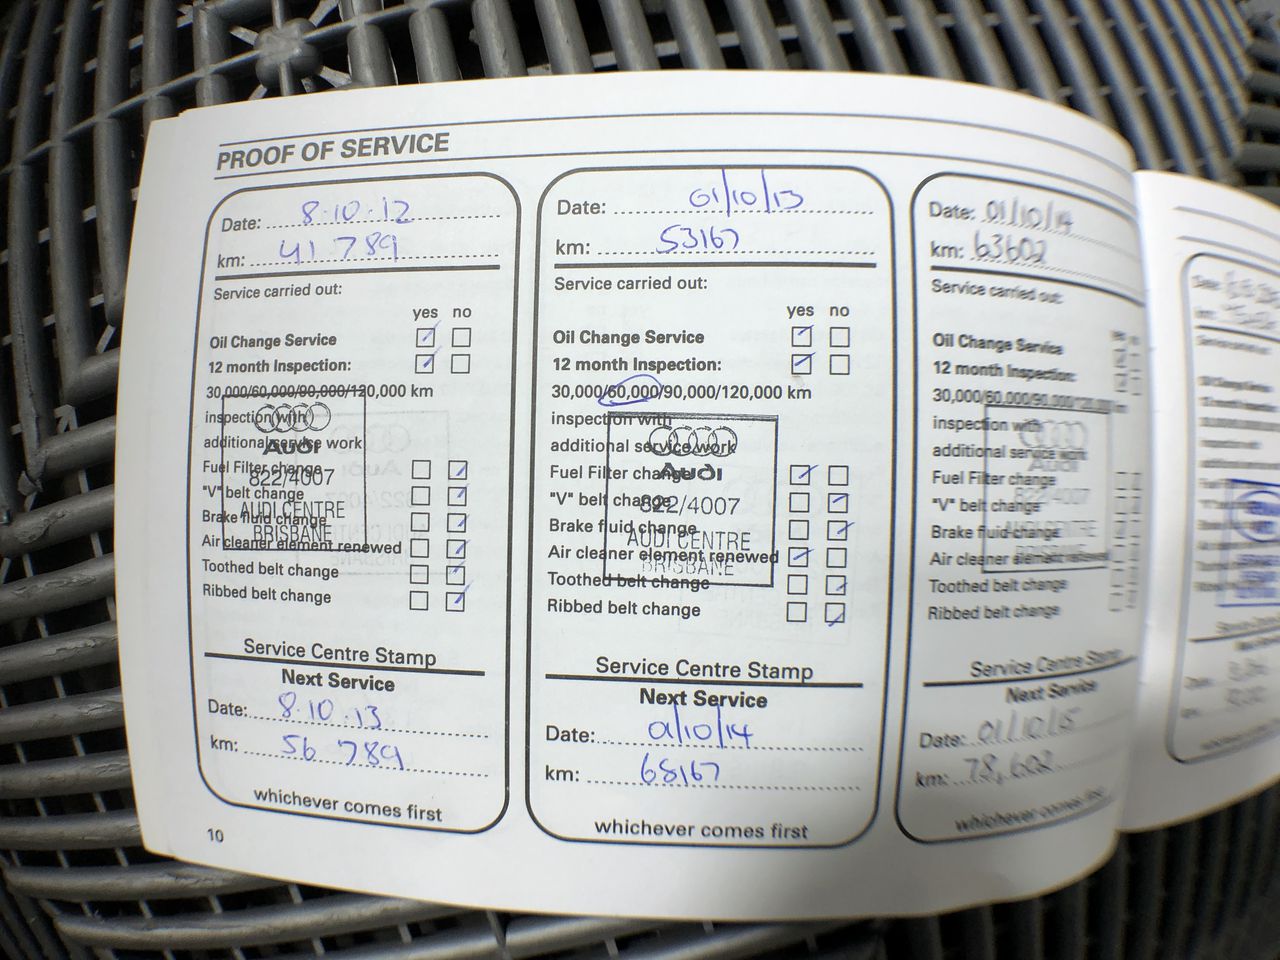 PROOF OF SERVICE
Date: 8.10.12
km: 41 789
Service carried out:
yes no
Oil Change Service
12 month Inspection:
30,000/60,000/90,000/120,000 km
inspection with
additional service work
Fuel Filter change
"V" belt change
Brake fluid change
Air cleaner element renewed
Toothed belt change
Ribbed belt change
Audi
822/4007
AUDI CENTRE
BRISBANE
Service Centre Stamp
Next Service
Date: 8.10.13
km: 56 789
whichever comes first
10
Date: 01/10/13
km: 53167
Service carried out:
yes no
Oil Change Service
12 month Inspection:
30,000/60,000/90,000/120,000 km
inspection with
additional service work
Fuel Filter change
"V" belt change
Brake fluid change
Air cleaner element renewed
Toothed belt change
Ribbed belt change
Audi
822/4007
AUDI CENTRE
BRISBANE
Service Centre Stamp
Next Service
Date: 01/10/14
km: 68167
whichever comes first
Date: 01/10/14
km: 63602
Service carried out:
Oil Change Service
12 month Inspection:
30,000/60,000/90,000/120,000 km
inspection with
additional service work
Fuel Filter change
"V" belt change
Brake fluid change
Air cleaner element renewed
Toothed belt change
Ribbed belt change
Audi
822/4007
AUDI CENTRE
BRISBANE
Service Centre Stamp
Next Service
Date: 01/10/15
km: 78,602
whichever comes first